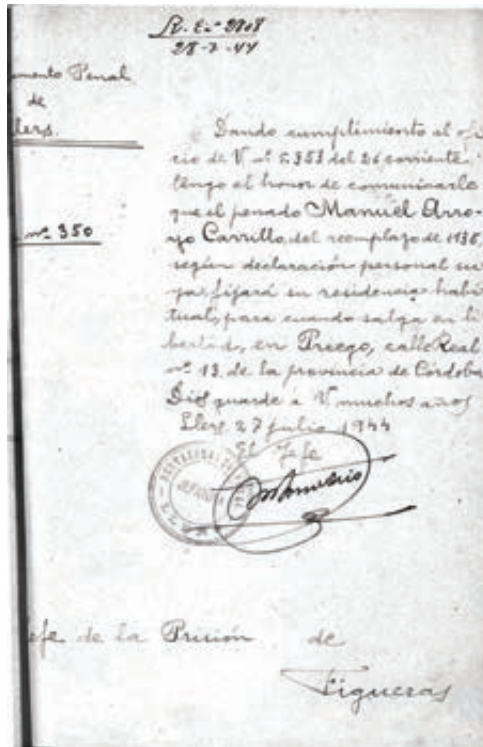 R. E. nº 2808
28-7-44
mento Penal
de
Llers.
nº 350
Dando cumplimiento al ofi
cio de V nº 5.353 del 26 corriente
tengo el honor de comunicarle
que el penado Manuel Arro-
yo Carrillo, del reemplazo de 1938,
según declaración personal su
ya, fijará su residencia habi
tual, para cuando salga en li
bertad, en Priego, calle Real
nº 13, de la provincia de Córdoba
Dios guarde a V muchos años
Llers 27 julio 1944
El Jefe
efe de la Prisión de
Figueras